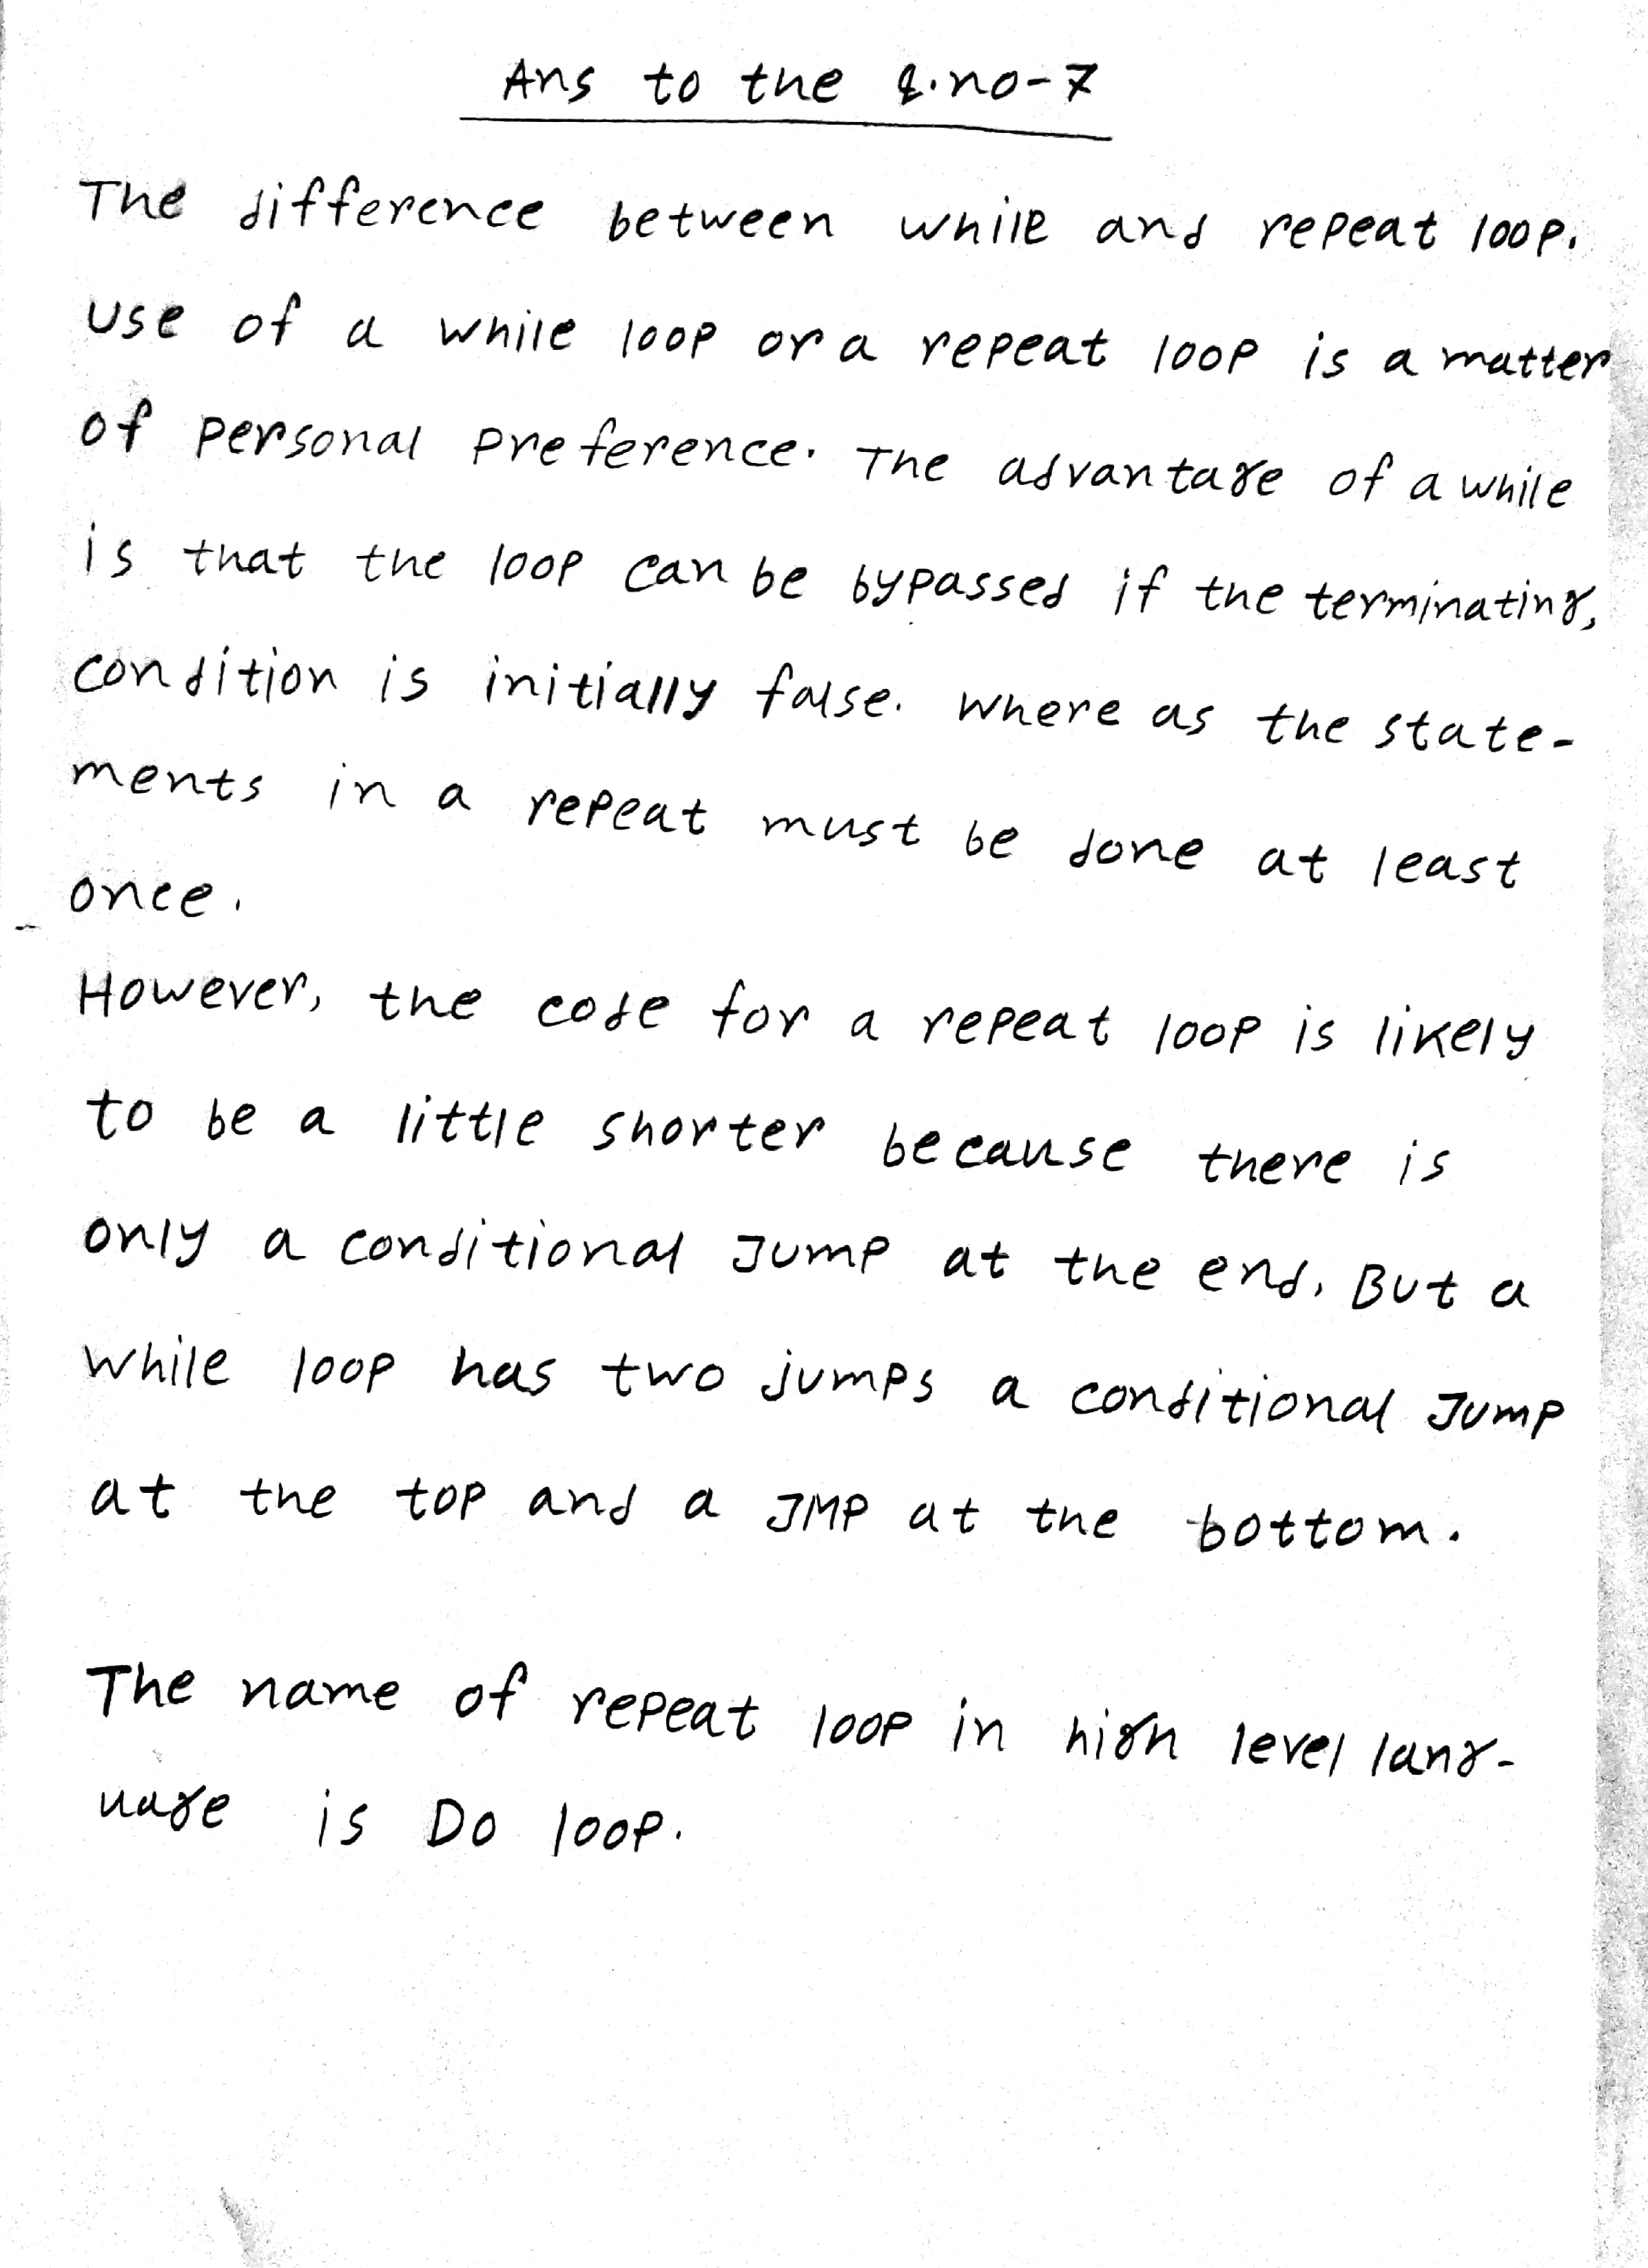 Ans to the q.no-7
The difference between while and repeat loop.
Use of a while loop or a repeat loop is a matter
of personal preference. The advantage of a while
is that the loop can be bypassed if the terminating,
condition is initially false. Where as the state-
ments in a repeat must be done at least
once.
However, the code for a repeat loop is likely
to be a little shorter because there is
only a conditional Jump at the end. But a
while loop has two jumps a conditional Jump
at the top and a JMP at the bottom.
The name of repeat loop in high level lang-
uage is Do loop.